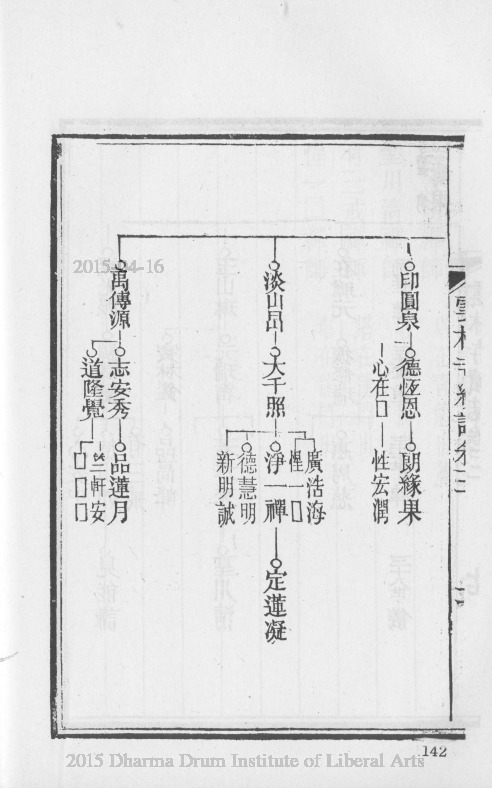 印圓泉
德恆恩
朗緣果
心在□
性宏潤
淡山昂
大千照
廣浩海
惺一□
淨一禪
德慧明
新明誠
定蓮凝
禹傳源
志安秀
品蓮月
道隆覺
竺軒安
□□□
142
2015-04-16
2015 Dharma Drum Institute of Liberal Arts